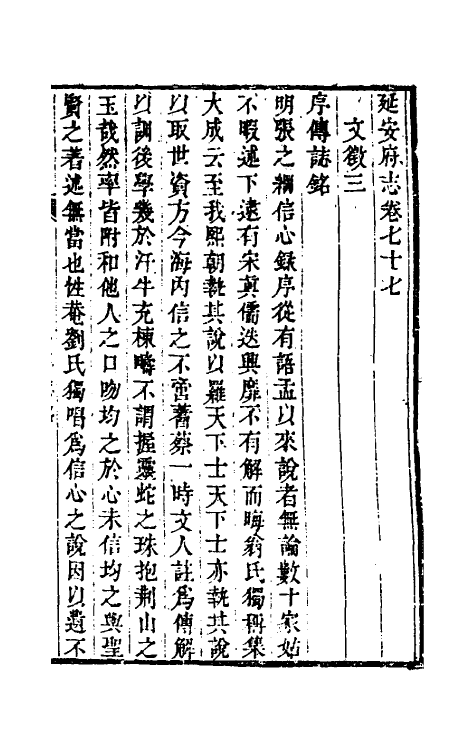 延安府志卷七十七
文徵三
序傳誌銘
明張之耤信心録序從有語孟以來說者無論數十家姑
不暇述下逮有宋眞儒迭興靡不有解而晦翁氏獨稱集
大成云至我熙朝執其說以羅天下士天下士亦執其說
以取世資方今海內信之不啻蓍蔡一時文人註爲傳解
以訓後學幾於汗牛充棟疇不謂握靈蛇之珠抱荆山之
玉哉然率皆附和他人之口吻均之於心未信均之與聖
賢之著述無當也性菴劉氏獨唱爲信心之說因以遺不